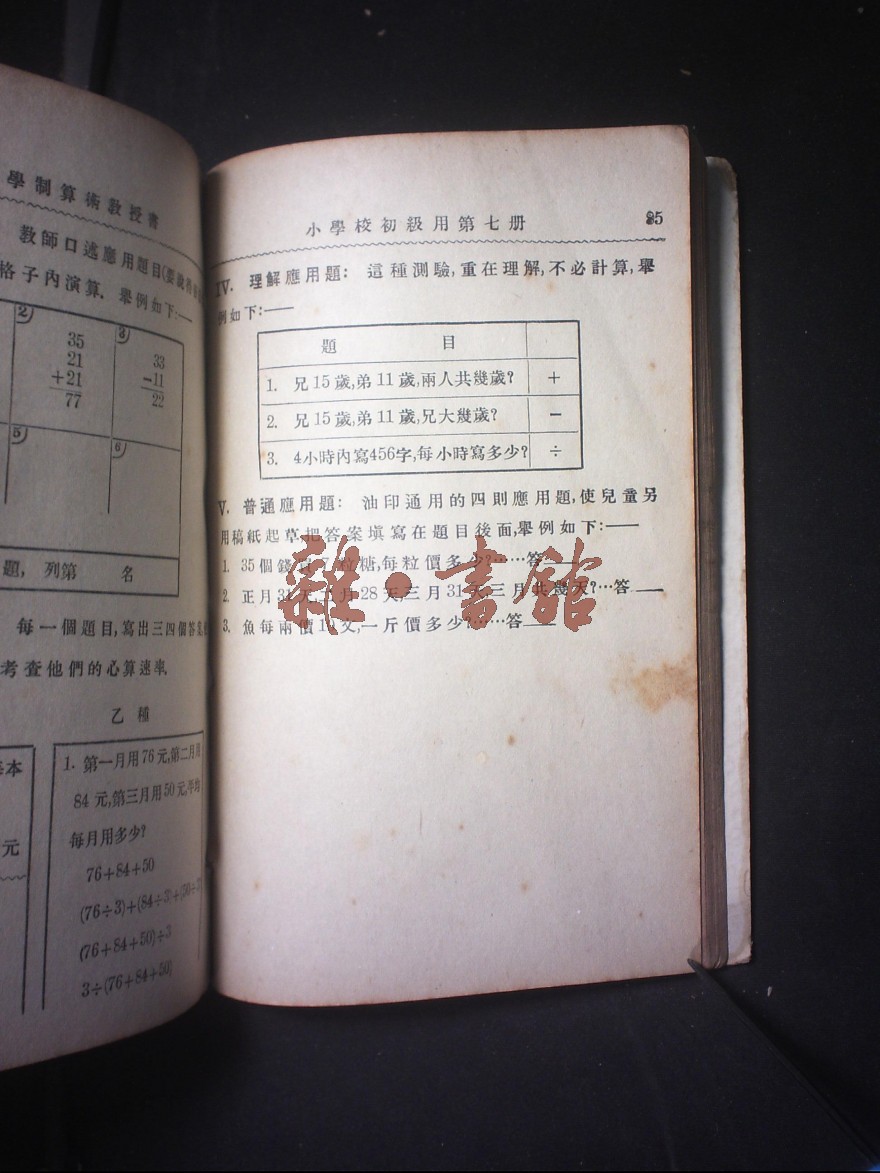 學制算術教授書
教師口述應用題目
格子內演算. 舉例如下:——
2
35
21
+21
77
3
33
-11
22
5
6
題, 列第 名
每一個題目,寫出三四個答案
考查他們的心算速率.
乙種
本
元
1. 第一月用76元,第二月用
84元,第三月用50元,平均
每月用多少?
76+84+50
(76÷3)+(84÷3)+(50÷3)
(76+84+50)÷3
3÷(76+84+50)
小學校初級用第七册 85
IV. 理解應用題: 這種測驗,重在理解,不必計算,舉
例如下:——
題 目
1. 兄15歲,弟11歲,兩人共幾歲? +
2. 兄15歲,弟11歲,兄大幾歲? −
3. 4小時內寫456字,每小時寫多少? ÷
V. 普通應用題: 油印通用的四則應用題,使兒童另
用稿紙起草,把答案填寫在題目後面,舉例如下:——
1. 35個錢 粒糖,每粒價多少?……答
2. 正月31天,二月28天,三月31天,三月共幾天?…答
3. 魚每兩價 文,一斤價多少?……答
雜·書館